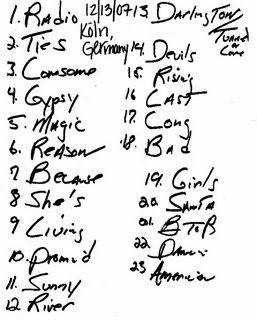 1. Radio
2. Ties
3. Lonsome
4. Gypsy
5. Magic
6. Reason
7 Because
8 She's
9 Living
10.
11. Sunny
12 River
12/13/07
Köln,
Germany
13. DARLINGTON
Tunnel
or
Love
14. Devils
15. Rising
16 LAST
17. Long
18. Bad
19. Girls
20. SANTA
21. BToR
22 Dancin
23 American